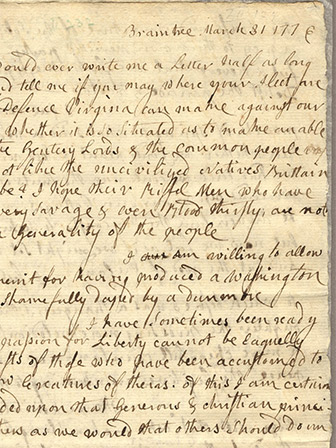 Braintree March 31 177
ould ever write me a Letter half as long
d tell me if you may where your Fleet are
Defence Virginia can make against our
Whether it is so situated as to make an able
e Gentery Lords & the common people
ot like the uncivilized Natives Brittain
be? I hope their Riffel Men who have
very savage & even Blood thirsty, are not
a Generality of the people
I am willing to allow
merit for having produced a Washington
Shamefully duped by a dunmore
I have Sometimes been ready
passion for Liberty cannot be Eaquelly
sts of those who have been accustomed to
ow Creatures of theirs. of this I am certain
ded upon that Generous & christian princi
hers as we would that others Should do un